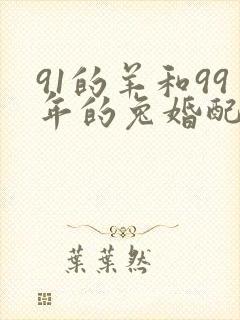 91的羊和99
年的兔婚配
葉葉然